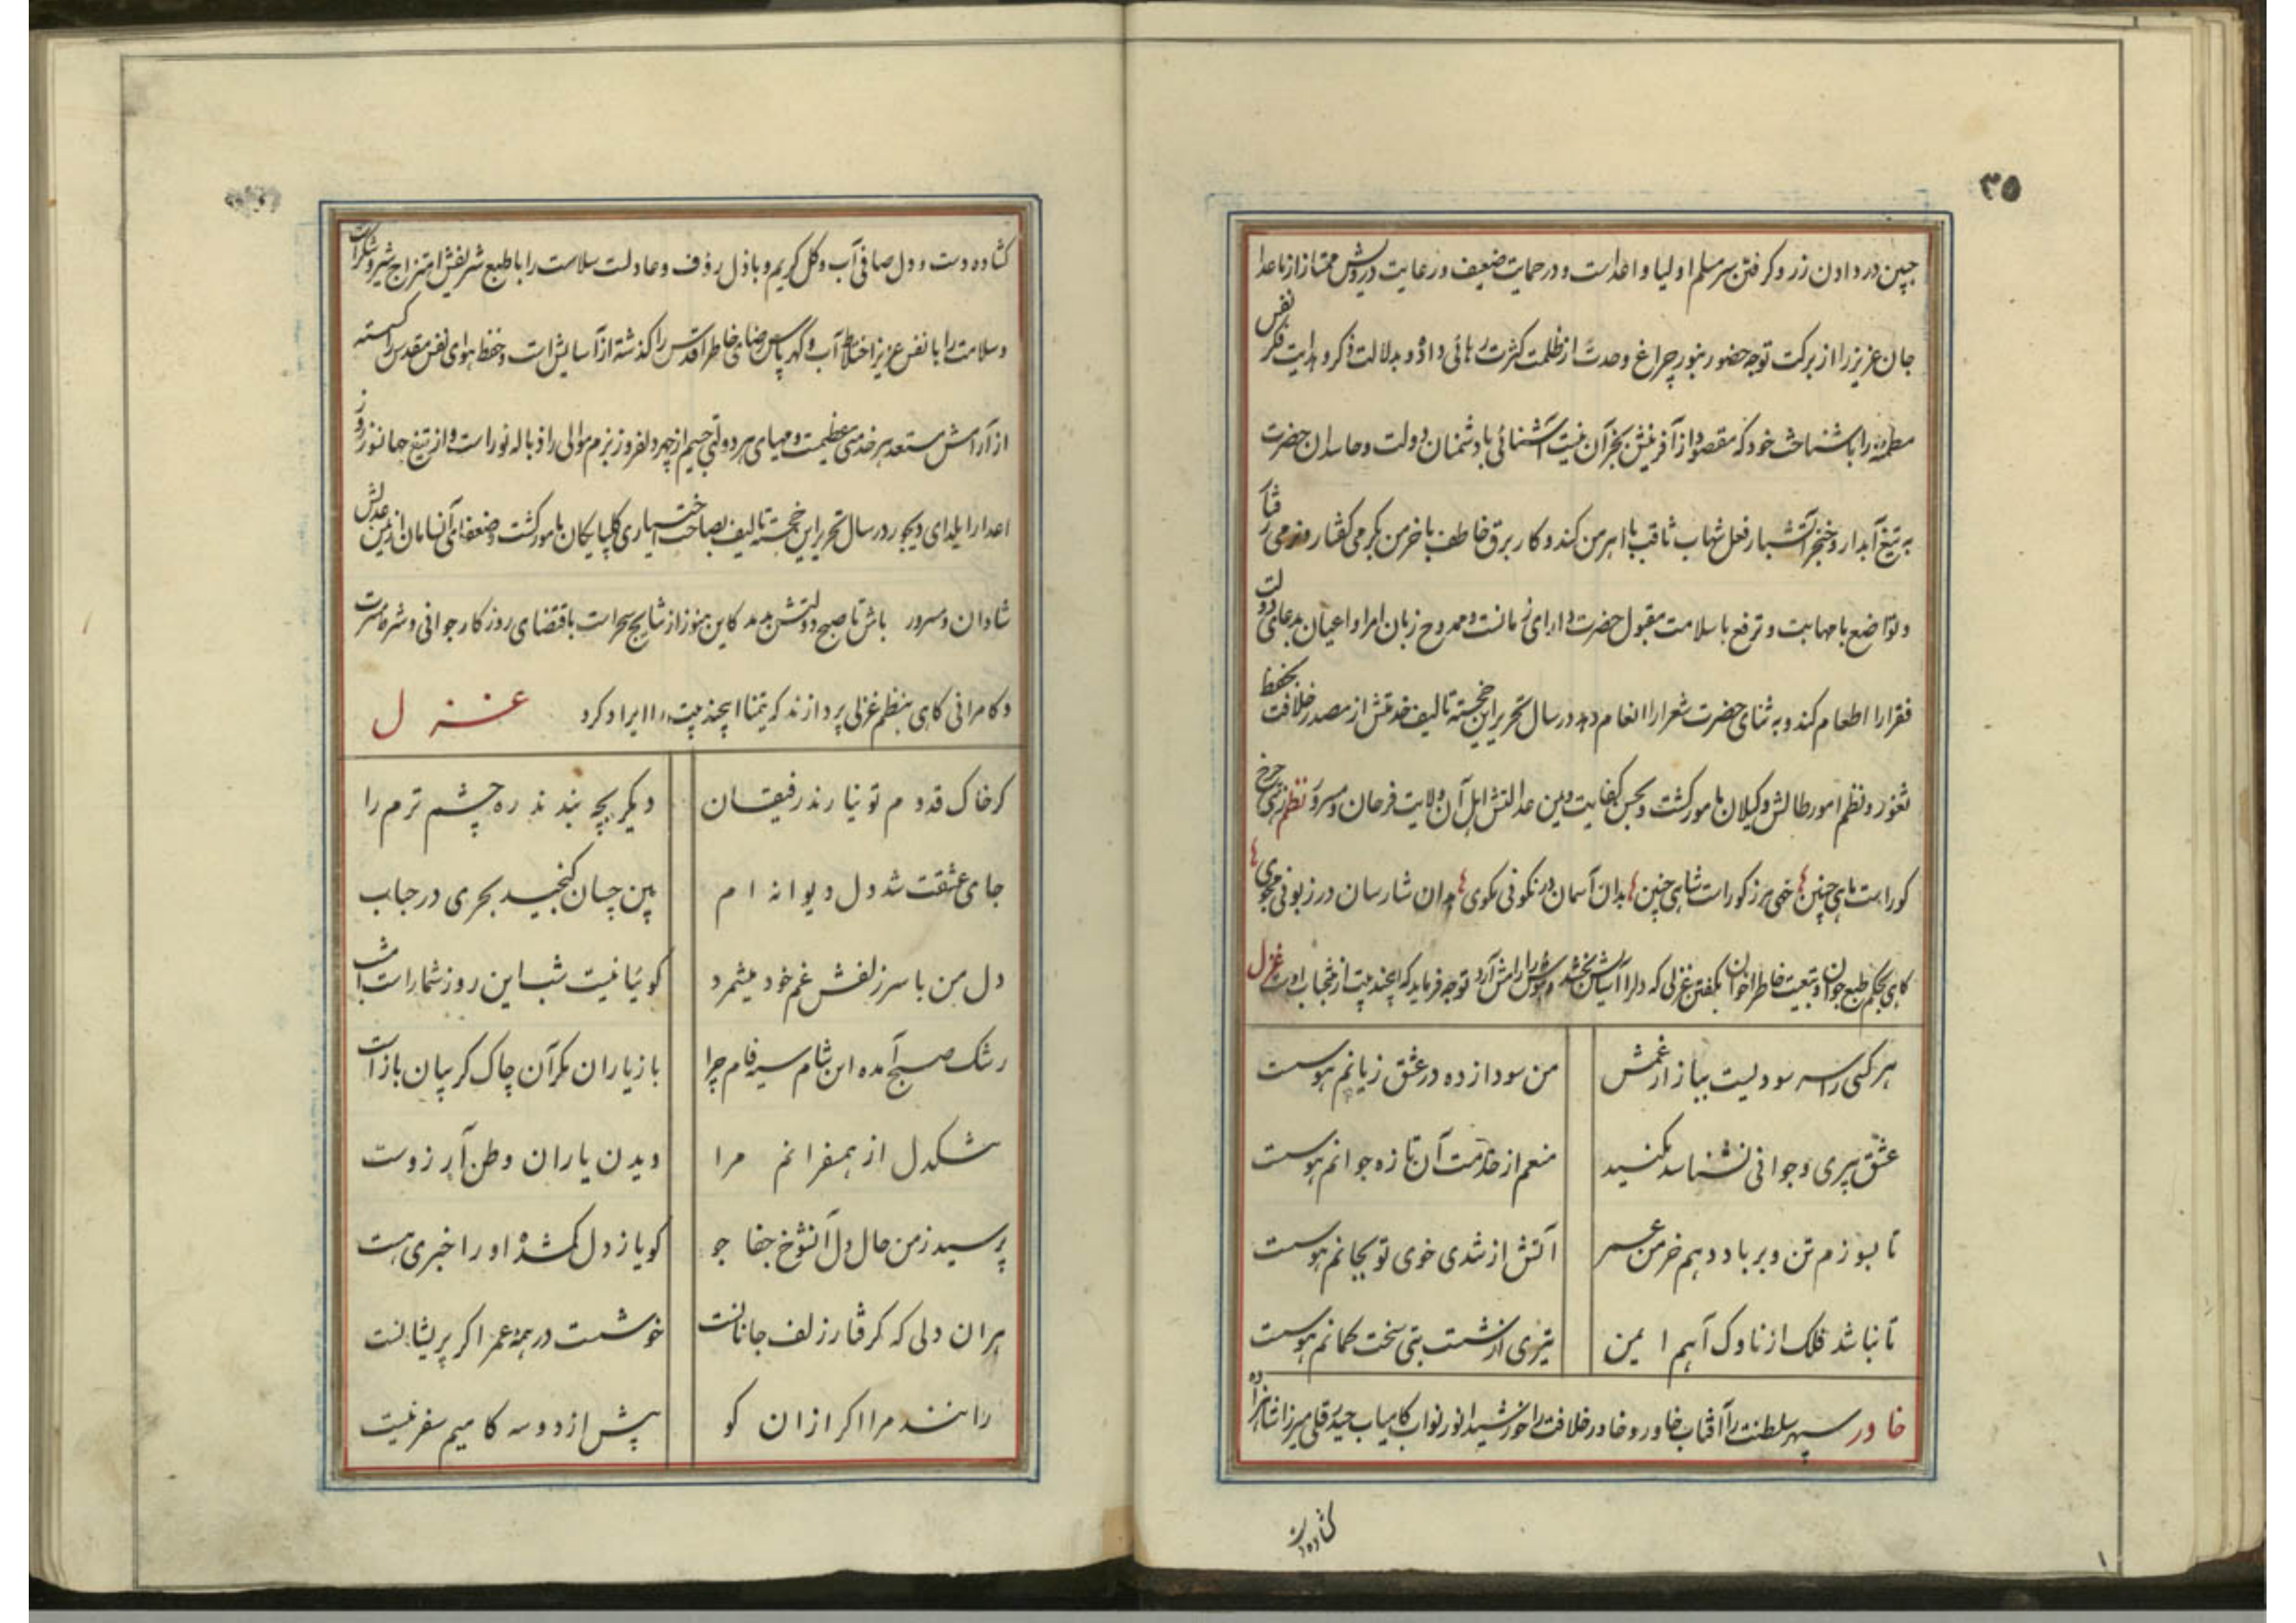 ۳۵
جبین در دادن زر و کرفتن سر مسلم اولیا و اعداست و در حمایت ضعیف و رعایت درویش ممتاز از ماعدا
جان عزیز را از برکت توجه حضور بنور چراغ وحدت از ظلمت کثرت رهائی داده و بدلالت ذکر و هدایت فکر نفس
مطمئنه را باشناخت خود که مقصود از آفرینش بجز آن نیست آشنائی با دشمنان دولت و حاسدان حضرت
به تیغ آبدار و خنجر آتشبار فعل شهاب ثاقب با اهرمن کند و کار برق خاطف با خرمن بکرمی کفتار و نرمی رفتار
و تواضع با مهابت و ترفع با سلامت مقبول حضرت دارای زمانست و ممدوح زبان امرا و اعیان بدعای دولت
فقرا را اطعام کند و به ثنای حضرت شعرا را انعام دهد در سال تحریر این خجسته تالیف خدمتش از مصدر خلافت بحفظ
ثغور و نظم امور طالش و کیلان مامور کشت و بحسن کفایت و یمن عدالتش اهل آن ولایت فرحان و مسرور نظم زهی چرخ
کو راست ماهی چنین خهی مرز کو راست شاهی چنین بدان آسمان در نکوئی مکوی بدان شارسان در زبونی مجوی
کاهی بحکم طبع جوان و تبعیت خاطر اخوان بکفتن غزلی که دلرا آسایش بخشد و هوش را رامش آرد توجه فرماید که اینچند بیت از منتخبات اوست غزل
هر کسی را سر سودیست ببازار غمش من سودازده در عشق زیانم هوست
عشق پیری و جوانی نشناسد مکنید منعم از خدمت آن تازه جوانم هوست
تا بسوزم تن و بر باد دهم خرمن عمر آتش از تندی خوی تو بجانم هوست
تا نباشد فلک از ناوک آهم ایمن تیری از شست بتی سخت کمانم هوست
خاور سپهر سلطنت را آفتاب خاور و خاور خلافت را خورشید انور نواب کامیاب حیدرقلی میرزا شاهزاده
کشاده دست
کشاده دست و دل صافی آب و کل کریم و باذل رؤف و عادلست سلاست را با طبع شریفش امتزاج شیر و شکر است
و سلامت را با نفس عزیز اختلاط آب و کهر پاس رضای خاطر اقدس را کذشته از آسایش است و حفظ هوای نفس مقدس را کسسته
از آرامش مستعد هر خدمتی عظیمست و مهیای هر دولتی جسیم از چهر دلفروز بزم موالی را ذباله نور است و از تیغ جهانسوز روز
اعدا را یلدای دیجور در سال تحریر این خجسته تالیف بصاحب اختیاری کلپایکان مامور کشت و ضعفای آنسامان از یمن عدلش
شادان و مسرور باش تا صبح دولتش بدمد کاین هنوز از نتایج سحر است باقتضای روزکار جوانی و شره مسرت
و کامرانی کاهی بنظم غزلی پردازند که تیمنا اینچند بیت را ایراد کرد غزل
کر خاک قدوم تو نیارند رفیقان دیکر بچه بندند ره چشم ترم را
جای عشقت شد دل دیوانه ام بین چسان کنجید بحری در حباب
دل من با سر زلفش غم خود میشمرد کوئیا نیست شب این روز شمار است امشب
رشک صبح آمده این شام سیه فام چرا باز یاران مکر آن چاک کریبان باز است
تنکدل از همسفرانم مرا دیدن یاران وطن آرزوست
پرسید ز من حال دل آنشوخ جفا جو کویا ز دل کمشده او را خبری هست
هر ان دلی که کرفتار زلف جانانست خوشست در همه عمر اکر پریشانست
رانند مرا اکر از ان کو پیش از دو سه کامیم سفر نیست